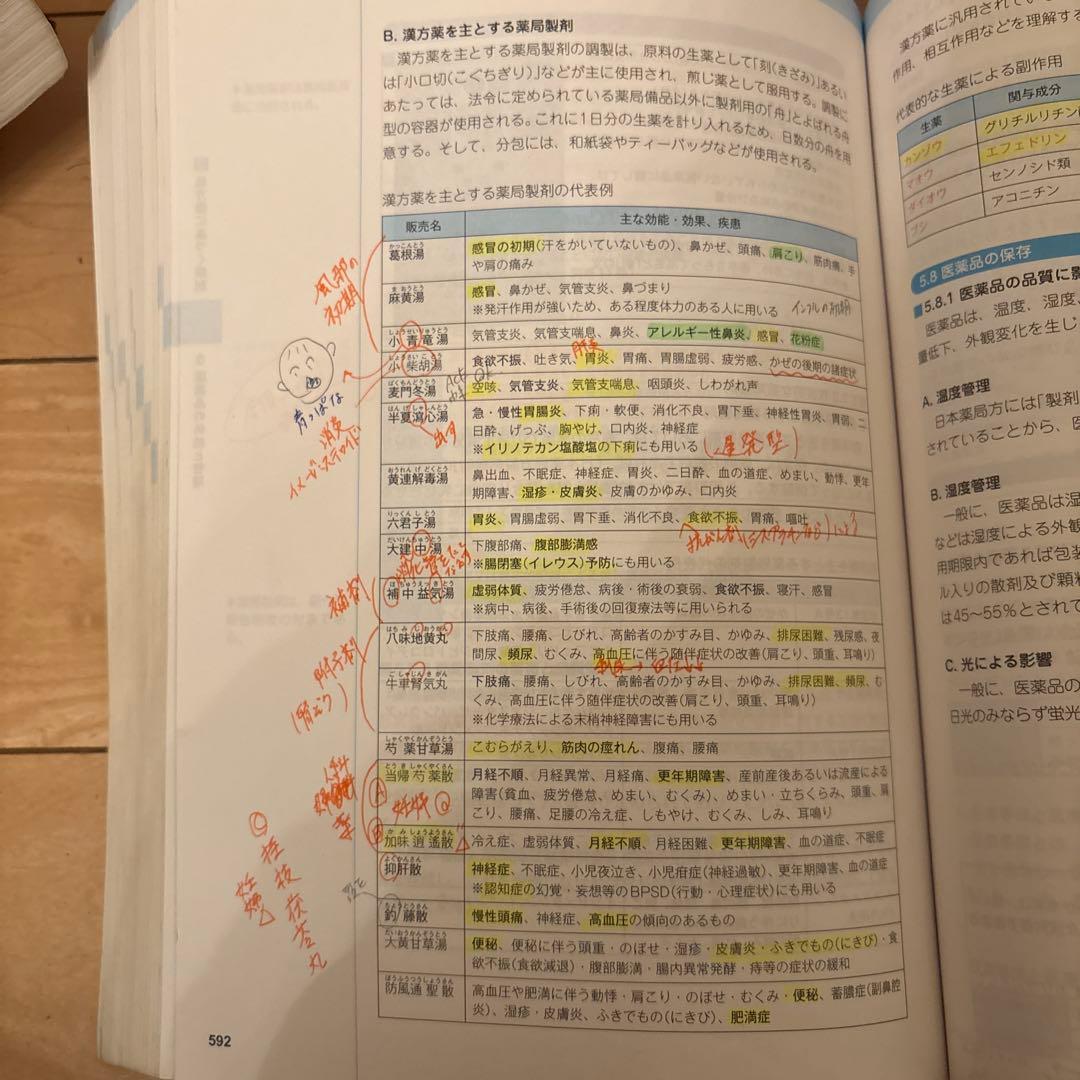 B. 漢方薬を主とする薬局製剤
漢方薬を主とする薬局製剤の調製は、原料の生薬として「刻(きざみ)」あるい
は「小口切(こぐちぎり)」などが主に使用され、煎じ薬として服用する。調製に
あたっては、法令に定められている薬局備品以外に製剤用の「舟」とよばれる舟
型の容器が使用される。これに1日分の生薬を計り入れるため、日数分の舟を用
意する。そして、分包には、和紙袋やティーバッグなどが使用される。
漢方薬を主とする薬局製剤の代表例
販売名 主な効能・効果、疾患
かっこんとう
葛根湯 感冒の初期(汗をかいていないもの)、鼻かぜ、頭痛、肩こり、筋肉痛、手
や肩の痛み
まおうとう
麻黄湯 感冒、鼻かぜ、気管支炎、鼻づまり
※発汗作用が強いため、ある程度体力のある人に用いる
しょうせいりゅうとう
小青竜湯 気管支炎、気管支喘息、鼻炎、アレルギー性鼻炎、感冒、花粉症
しょうさいことう
小柴胡湯 食欲不振、吐き気、胃炎、胃痛、胃腸虚弱、疲労感、かぜの後期の諸症状
ばくもんどうとう
麦門冬湯 空咳、気管支炎、気管支喘息、咽頭炎、しわがれ声
はんげしゃしんとう
半夏瀉心湯 急・慢性胃腸炎、下痢・軟便、消化不良、胃下垂、神経性胃炎、胃弱、二
日酔、げっぷ、胸やけ、口内炎、神経症
※イリノテカン塩酸塩の下痢にも用いる (遅発型)
おうれんげどくとう
黄連解毒湯 鼻出血、不眠症、神経症、胃炎、二日酔、血の道症、めまい、動悸、更年
期障害、湿疹・皮膚炎、皮膚のかゆみ、口内炎
りっくんしとう
六君子湯 胃炎、胃腸虚弱、胃下垂、消化不良、食欲不振、胃痛、嘔吐
だいけんちゅうとう
大建中湯 下腹部痛、腹部膨満感
※腸閉塞(イレウス)予防にも用いる
ほちゅうえっきとう
補中益気湯 虚弱体質、疲労倦怠、病後・術後の衰弱、食欲不振、寝汗、感冒
※病中、病後、手術後の回復療法等に用いられる
はちみじおうがん
八味地黄丸 下肢痛、腰痛、しびれ、高齢者のかすみ目、かゆみ、排尿困難、残尿感、夜
間尿、頻尿、むくみ、高血圧に伴う随伴症状の改善(肩こり、頭重、耳鳴り)
ごしゃじんきがん
牛車腎気丸 下肢痛、腰痛、しびれ、高齢者のかすみ目、かゆみ、排尿困難、頻尿、む
くみ、高血圧に伴う随伴症状の改善(肩こり、頭重、耳鳴り)
※化学療法による末梢神経障害にも用いる
しゃくやくかんぞうとう
芍薬甘草湯 こむらがえり、筋肉の痙れん、腹痛、腰痛
とうきしゃくやくさん
当帰芍薬散 月経不順、月経異常、月経痛、更年期障害、産前産後あるいは流産による
障害(貧血、疲労倦怠、めまい、むくみ)、めまい・立ちくらみ、頭重、肩
こり、腰痛、足腰の冷え症、しもやけ、むくみ、しみ、耳鳴り
かみしょうようさん
加味逍遙散 冷え症、虚弱体質、月経不順、月経困難、更年期障害、血の道症、不眠症
よくかんさん
抑肝散 神経症、不眠症、小児夜泣き、小児疳症(神経過敏)、更年期障害、血の道症
※認知症の幻覚・妄想等のBPSD(行動・心理症状)にも用いる
ちょうとうさん
釣藤散 慢性頭痛、神経症、高血圧の傾向のあるもの
だいおうかんぞうとう
大黄甘草湯 便秘、便秘に伴う頭重・のぼせ・湿疹・皮膚炎・ふきでもの(にきび)・食
欲不振(食欲減退)・腹部膨満・腸内異常発酵・痔等の症状の緩和
ぼうふうつうしょうさん
防風通聖散 高血圧や肥満に伴う動悸・肩こり・のぼせ・むくみ・便秘、蓄膿症(副鼻腔
炎)、湿疹・皮膚炎、ふきでもの(にきび)、肥満症
592
風邪の
初期
青っぱな
補剤
附子剤
妊婦
桂枝茯苓丸
漢方薬に汎用されてい
作用、相互作用などを理解する
代表的な生薬による副作用
生薬 関与成分
カンゾウ グリチルリチン
マオウ エフェドリン
ダイオウ センノシド類
ブシ アコニチン
5.8 医薬品の保存
5.8.1 医薬品の品質に影
医薬品は、温度、湿度、
量低下、外観変化を生じ
A. 温度管理
日本薬局方には「製剤
されていることから、医
B. 湿度管理
一般に、医薬品は湿
などは湿度による外観
用期限内であれば包装
ル入りの散剤及び顆粒
は45〜55%とされて
C. 光による影響
一般に、医薬品の
日光のみならず蛍光